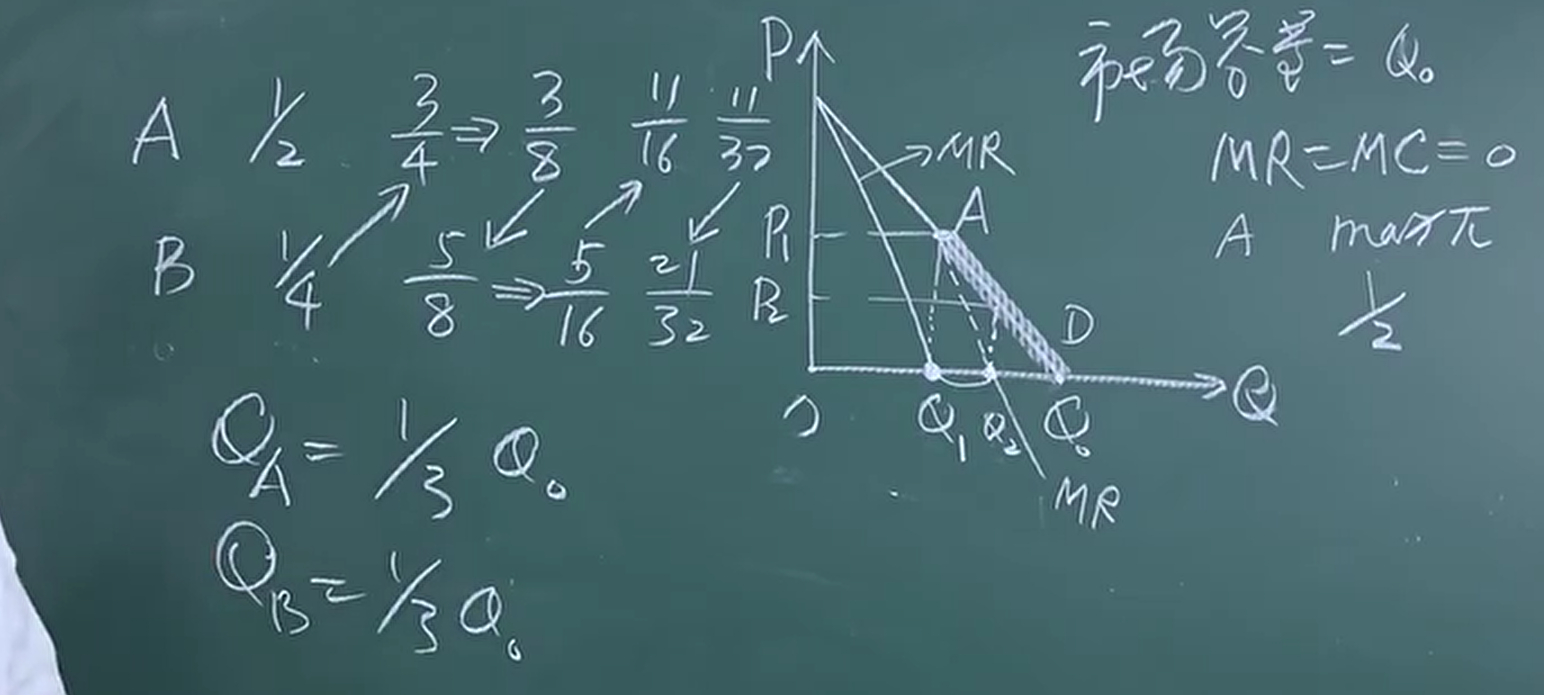 A 1/2 3/4 ⇒ 3/8 11/16 11/32
B 1/4 5/8 ⇒ 5/16 21/32
Q_A = 1/3 Q₀
Q_B = 1/3 Q₀
P
MR
A
P₁
P₂
D
O Q₁ Q₂ Q₀ Q
MR
市场容量 = Q₀
MR=MC=0
A max π
1/2